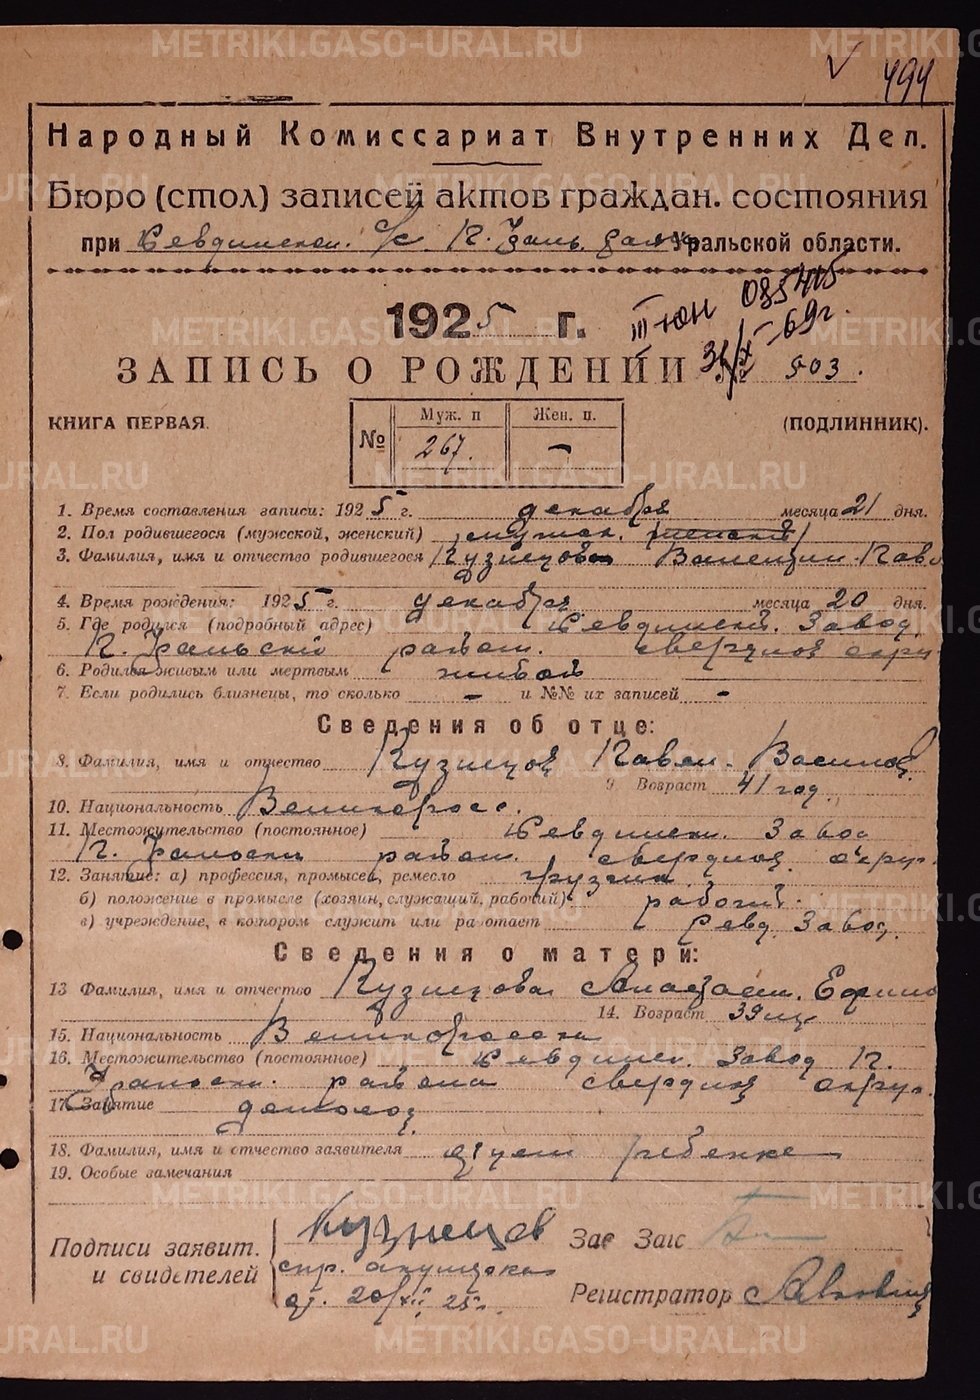 494
Народный Комиссариат Внутренних Дел.
Бюро (стол) записей актов граждан. состояния
при Ревдинском. с/с. П. Уральской области.
III-ЮН 085415
1925 г.
31/X-69г.
ЗАПИСЬ О РОЖДЕНИИ № 503.
КНИГА ПЕРВАЯ. (ПОДЛИННИК).
Муж. п Жен. п.
№ 267. —
1. Время составления записи: 1925 г. декабря месяца 21 дня.
2. Пол родившегося (мужской, женский) мужск. (женский)
3. Фамилия, имя и отчество родившегося Кузнецов Валентин Павл
4. Время рождения: 1925 г. декабря месяца 20 дня.
5. Где родился (подробный адрес) Ревдинский. Завод.
П. Уральский район. свердлов окру
6. Родился живым или мертвым живой
7. Если родились близнецы, то сколько — и №№ их записей —
Сведения об отце:
8. Фамилия, имя и отчество Кузнецов Павел. Василов
9. Возраст 41 год.
10. Национальность Великоросс.
11. Местожительство (постоянное) Ревдински. Завод
П. Уральски район. свердлов окру.
12. Занятие: а) профессия, промысел, ремесло грузчик.
б) положение в промысле (хозяин, служащий, рабочий) рабочий.
в) учреждение, в котором служит или работает Ревд. Завод.
Сведения о матери:
13 Фамилия, имя и отчество Кузнецова Анастаси. Ефимо
14. Возраст 39 лет
15. Национальность Великоросска
16. Местожительство (постоянное) Ревдинск. Завод П.
Уральски. района свердлов окру.
17. Занятие домохоз.
18. Фамилия, имя и отчество заявителя отец ребенка
19. Особые замечания
Подписи заявит. и свидетелей
Кузнецов
спр. акушерки
от. 20/XII 25г.
Зав Загс
Регистратор
METRIKI.GASO-URAL.RU